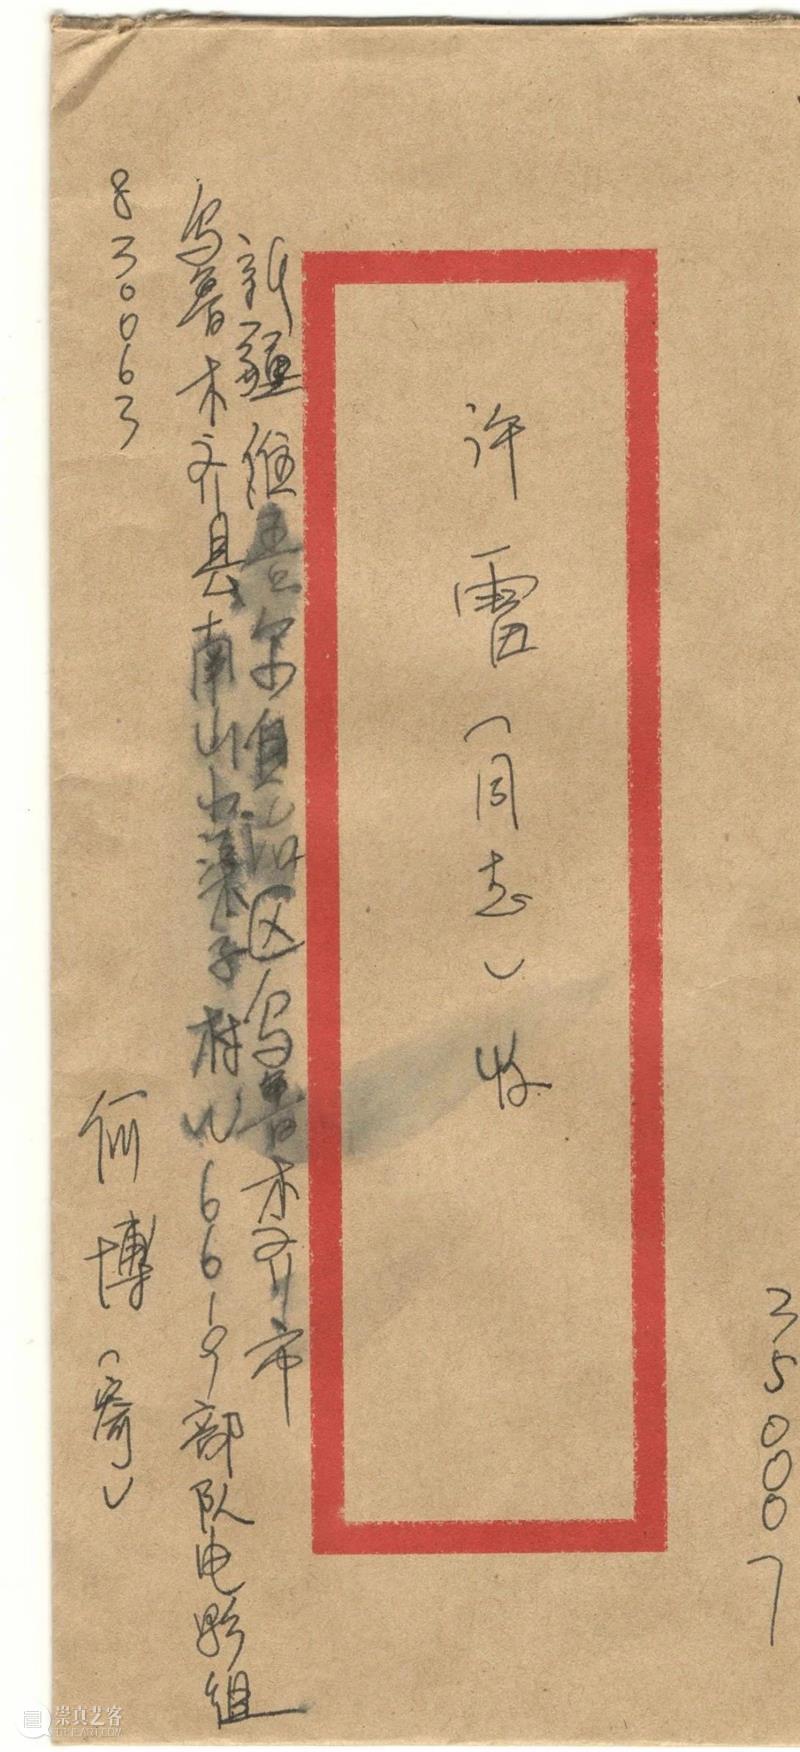 350007
许雷（同志）收
新疆维吾尔自治区乌鲁木齐市
乌鲁木齐县南山小渠子村W6619部队电影组
830063
何博（寄）
崇真艺客